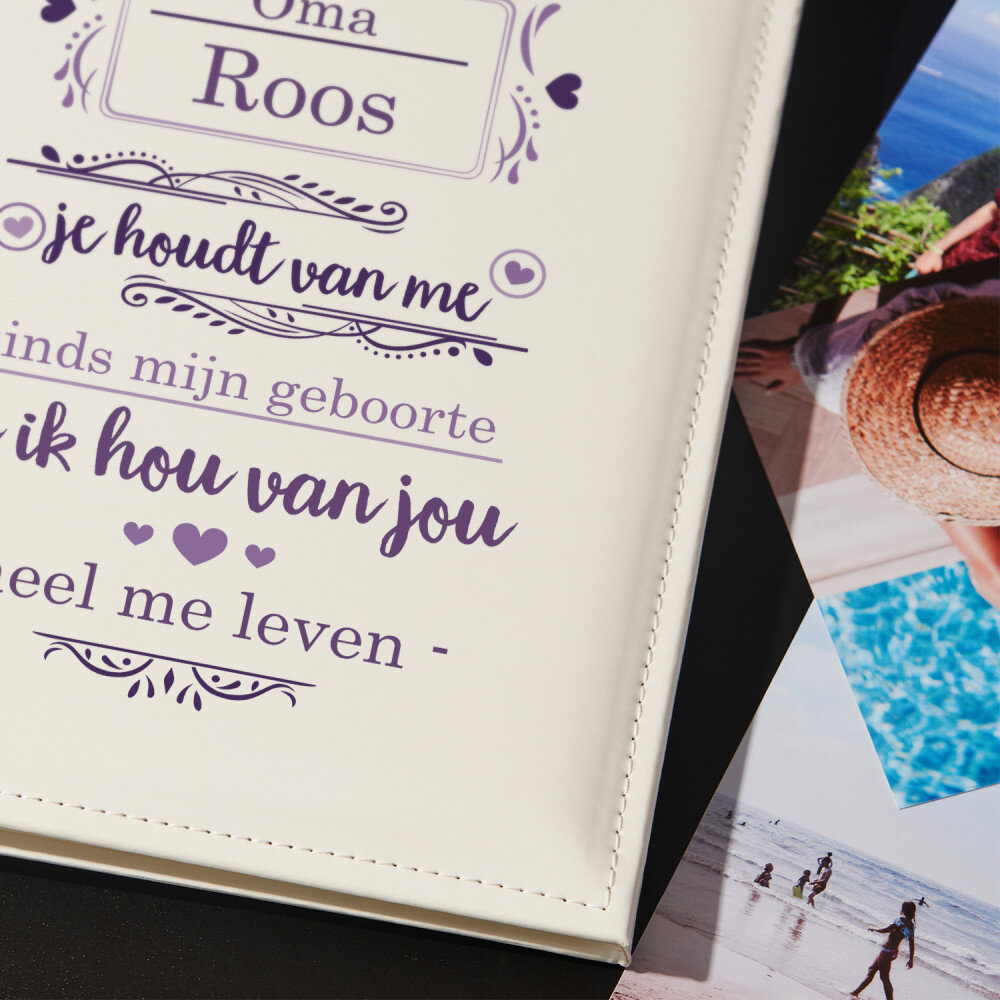 Oma
Roos
je houdt van me
inds mijn geboorte
ik hou van jou
heel me leven -